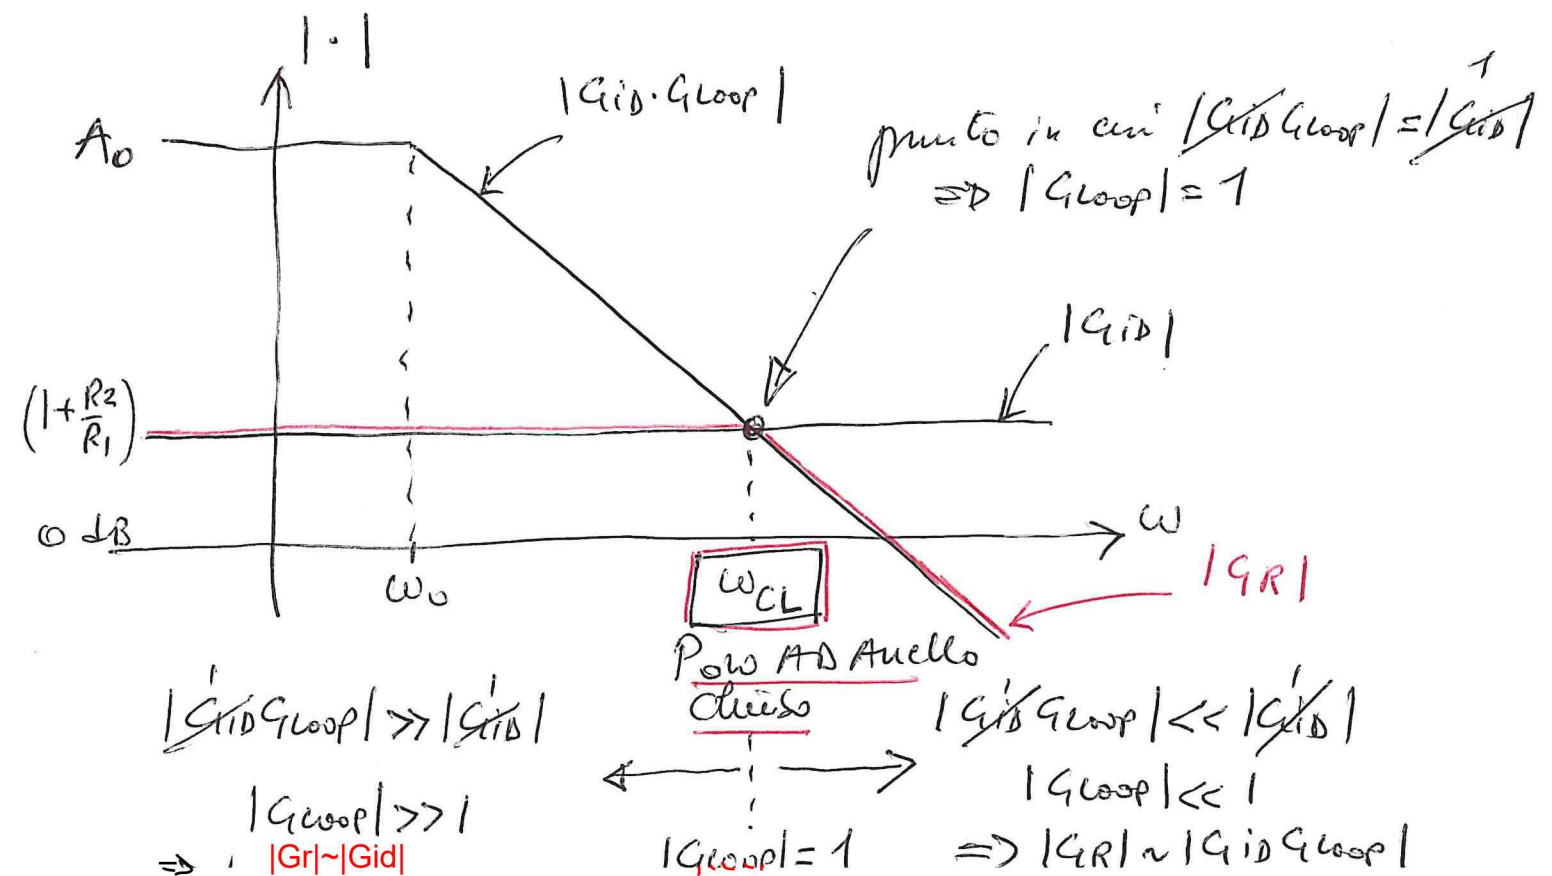 |·|
A₀
|GiD·GLOOP|
punto in cui |GiD GLOOP| = |GiD|
1
=> |GLOOP| = 1
|GiD|
(1+R2/R1)
0 dB
ω
ω₀
ωCL
|GR|
POLO AD Anello
chiuso
|GiD GLOOP| >> |GiD|
1 1
|GLOOP| >> 1
=> |Gr|~|Gid|
|GLOOP| = 1
|GiD GLOOP| << |GiD|
1 1
|GLOOP| << 1
=> |GR| ~ |GiD GLOOP|